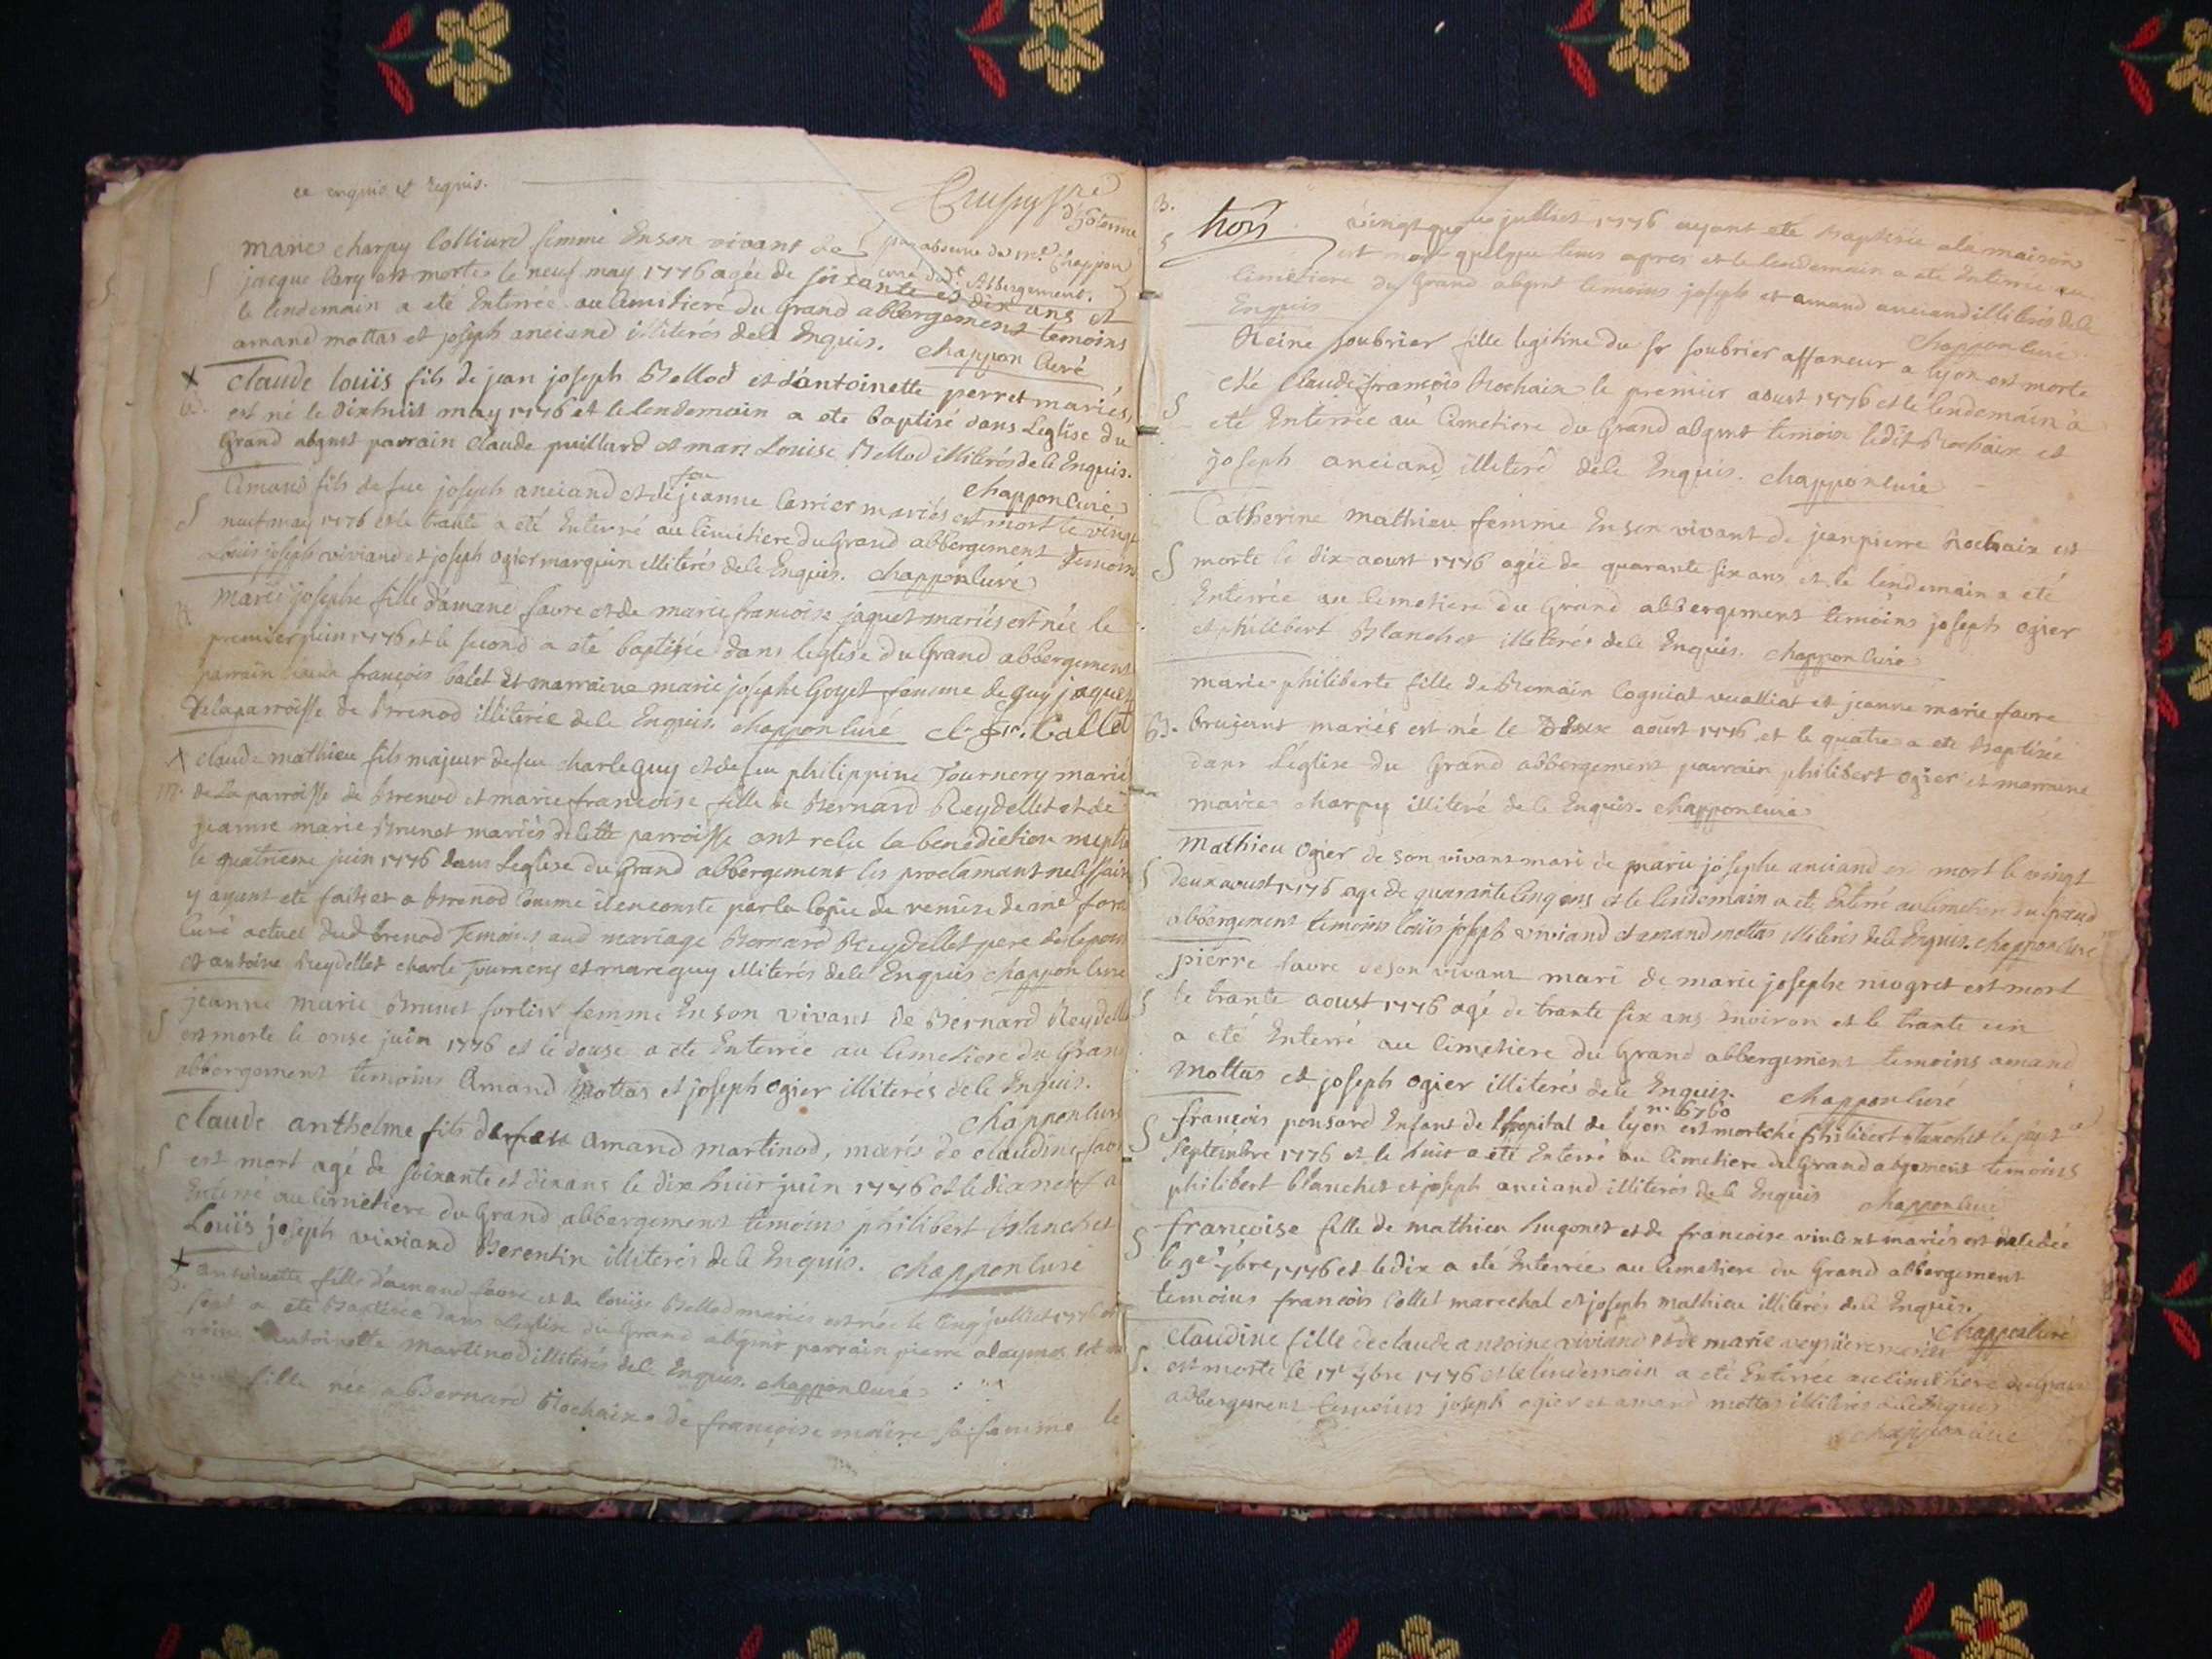 ce enquis et requis.
marie charpy colliard femme En son vivant de
par absence de mr. chappon
curé dudt. Abbergement.
jacque Bery est morte le neuf may 1776 agée de soixante et dix ans et
le lendemain a eté Enterrée au Cimitiere du Grand abbergement temoins
amand mottas et joseph anciand illiterés dele Enquis. chappon Curé
Claude louïs fils de jean joseph Bellod et d'antoinette perret mariés,
B. est né le dixhuit may 1776 et le lendemain a ete baptisé dans Leglise du
Grand abgmt parrain Claude puillard et mare Louise Bellod illiterés dele Enquis.
chappon Curé
Amand fils de feu joseph anciand et de feu jeanne Carrier mariés est mort le vingt
S neuf may 1776 et le trante a eté Enterré au Cimitiere du Grand abbergement temoins
Louis joseph viviand et joseph ogier marquin illiterés dele Enquis. chappon Curé
Marie josephe fille d'amand favre et de marie francoise jaquet mariés est née le
premier juin 1776 et le second a eté baptisée dans leglise du Grand abbergement
parrain Claude françois balet et marraine marie josephe Goyet femme de guy jaquet
de la parroisse de Brenod illiterée dele Enquis. chappon Curé cl. fr. Ballet
Claude mathieu fils majeur de feu charle guy et de feu philippine Tournery mariés
m. de La parroisse de Brenod et marie francoise fille de Bernard Reydellet et de
jeanne marie Brunet mariés de cette parroisse ont reçu la benediction nuptia
le quatrieme juin 1776 dans Leglise du Grand abbergement les proclamant necessair
y ayant ete faites et a Brenod Comme il en conste par la Copie de remise de mre fore
Curé actuel dud Brenod Temoins aud mariage Bernard Reydellet pere de lepouse
et antoine Reydellet charle Tournery et marc guy illiterés dele Enquis chappon Curé
jeanne marie Brunet fortier femme En son vivant de Bernard Reydellet
S est morte le onse juin 1776 et le douse a ete Enterrée au Cimetiere du Grand
abbergement temoins Amand Mottas et joseph ogier illiterés dele Enquis.
chappon Curé
Claude anthelme fils de feu amand martinod, maris de claudine favre
S est mort agé de soixante et dix ans le dix huit juin 1776 et le dixneuf a
Enterré au Cimetiere du Grand abbergement temoins philibert Blanchet
Louïs joseph viviand Berentin illiterés dele Enquis. chappon Curé
antoinette fille d'amand favre et de louïse Bellod mariés est née le cinq juillet 1776 et
sept a ete Baptisée dans Leglise du Grand abgmt parrain pierre alaymos et
antoinette Martinod illiterés dele Enquis. chappon Curé
fille née a Bernard Rochaix de françoise maire sa femme le
B. vingt juillet 1776 ayant ete baptisée a la maison
S est mort quelque tems apres et le lendemain a eté Enterrée au
Cimetiere du Grand abgmt temoins joseph et amand anciand illiterés dele
Enquis chappon Curé
Reine soubrier fille legitine du sr soubrier affaneur a lyon est morte
ché Claude françois Rochaix le premier aoust 1776 et le lendemain à
S eté Enterrée au Cimetiere du Grand abgmt temoin ledit Rochaix et
joseph anciand illiteré dele Enquis. chappon Curé
Catherine mathieu femme En son vivant de jean pierre Rochaix est
S morte le dix aoust 1776 agée de quarante six ans et le lendemain a eté
Enterrée au Cimetiere du Grand abbergement temoins joseph ogier
et philibert Blanchet illiterés dele Enquis. chappon Curé
marie philiberte fille de Romain Cogniat vualliat et jeanne marie favre
B. brujant mariés est né le Deux aoust 1776 et le quatre a ete Baptisée
dans Léglise du Grand abbergement parrain philibert ogier et marraine
marie charpy illiteré dele Enquis. chappon Curé
Mathieu ogier de son vivant mari de marie josephe anciand est mort le vingt
S deux aoust 1776 age de quarante cinq ans et le lendemain a eté Enterré au Cimetiere du Grand
abbergement temoins louïs joseph viviand et amand mottas illiterés dele Enquis. chappon Curé
pierre favre de son vivant mari de marie josephe niogret est mort
S le trante aoust 1776 agé de trante six ans Environ et le trante un
a eté Enterré au Cimetiere du Grand abbergement temoins amand
Mottas et joseph ogier illiterés dele Enquis. chappon Curé
n. 6760
S françois ponsard Enfant de l'hopital de lyon est mort ché philibert Blanchet le sept
septembre 1776 et le huit a eté Enterré au Cimetiere du Grand abgement temoins
philibert blanchet et joseph anciand illiterés dele Enquis chappon Curé
S françoise fille de mathieu hugonet et de francoise vincent mariés est decedée
le 9e 7bre 1776 et le dix a eté Enterrée au Cimetiere du Grand abbergement
temoins francois Collet marechal et joseph mathieu illiterés dele Enquis.
chappon Curé
Claudine fille de claude antoine viviand et de marie veysiere mariés
S. est morte le 17e 7bre 1776 et le lendemain a eté Enterrée au Cimetiere du Grand
abbergement temoins joseph ogier et amand mottas illiterés dele Enquis
chappon Curé